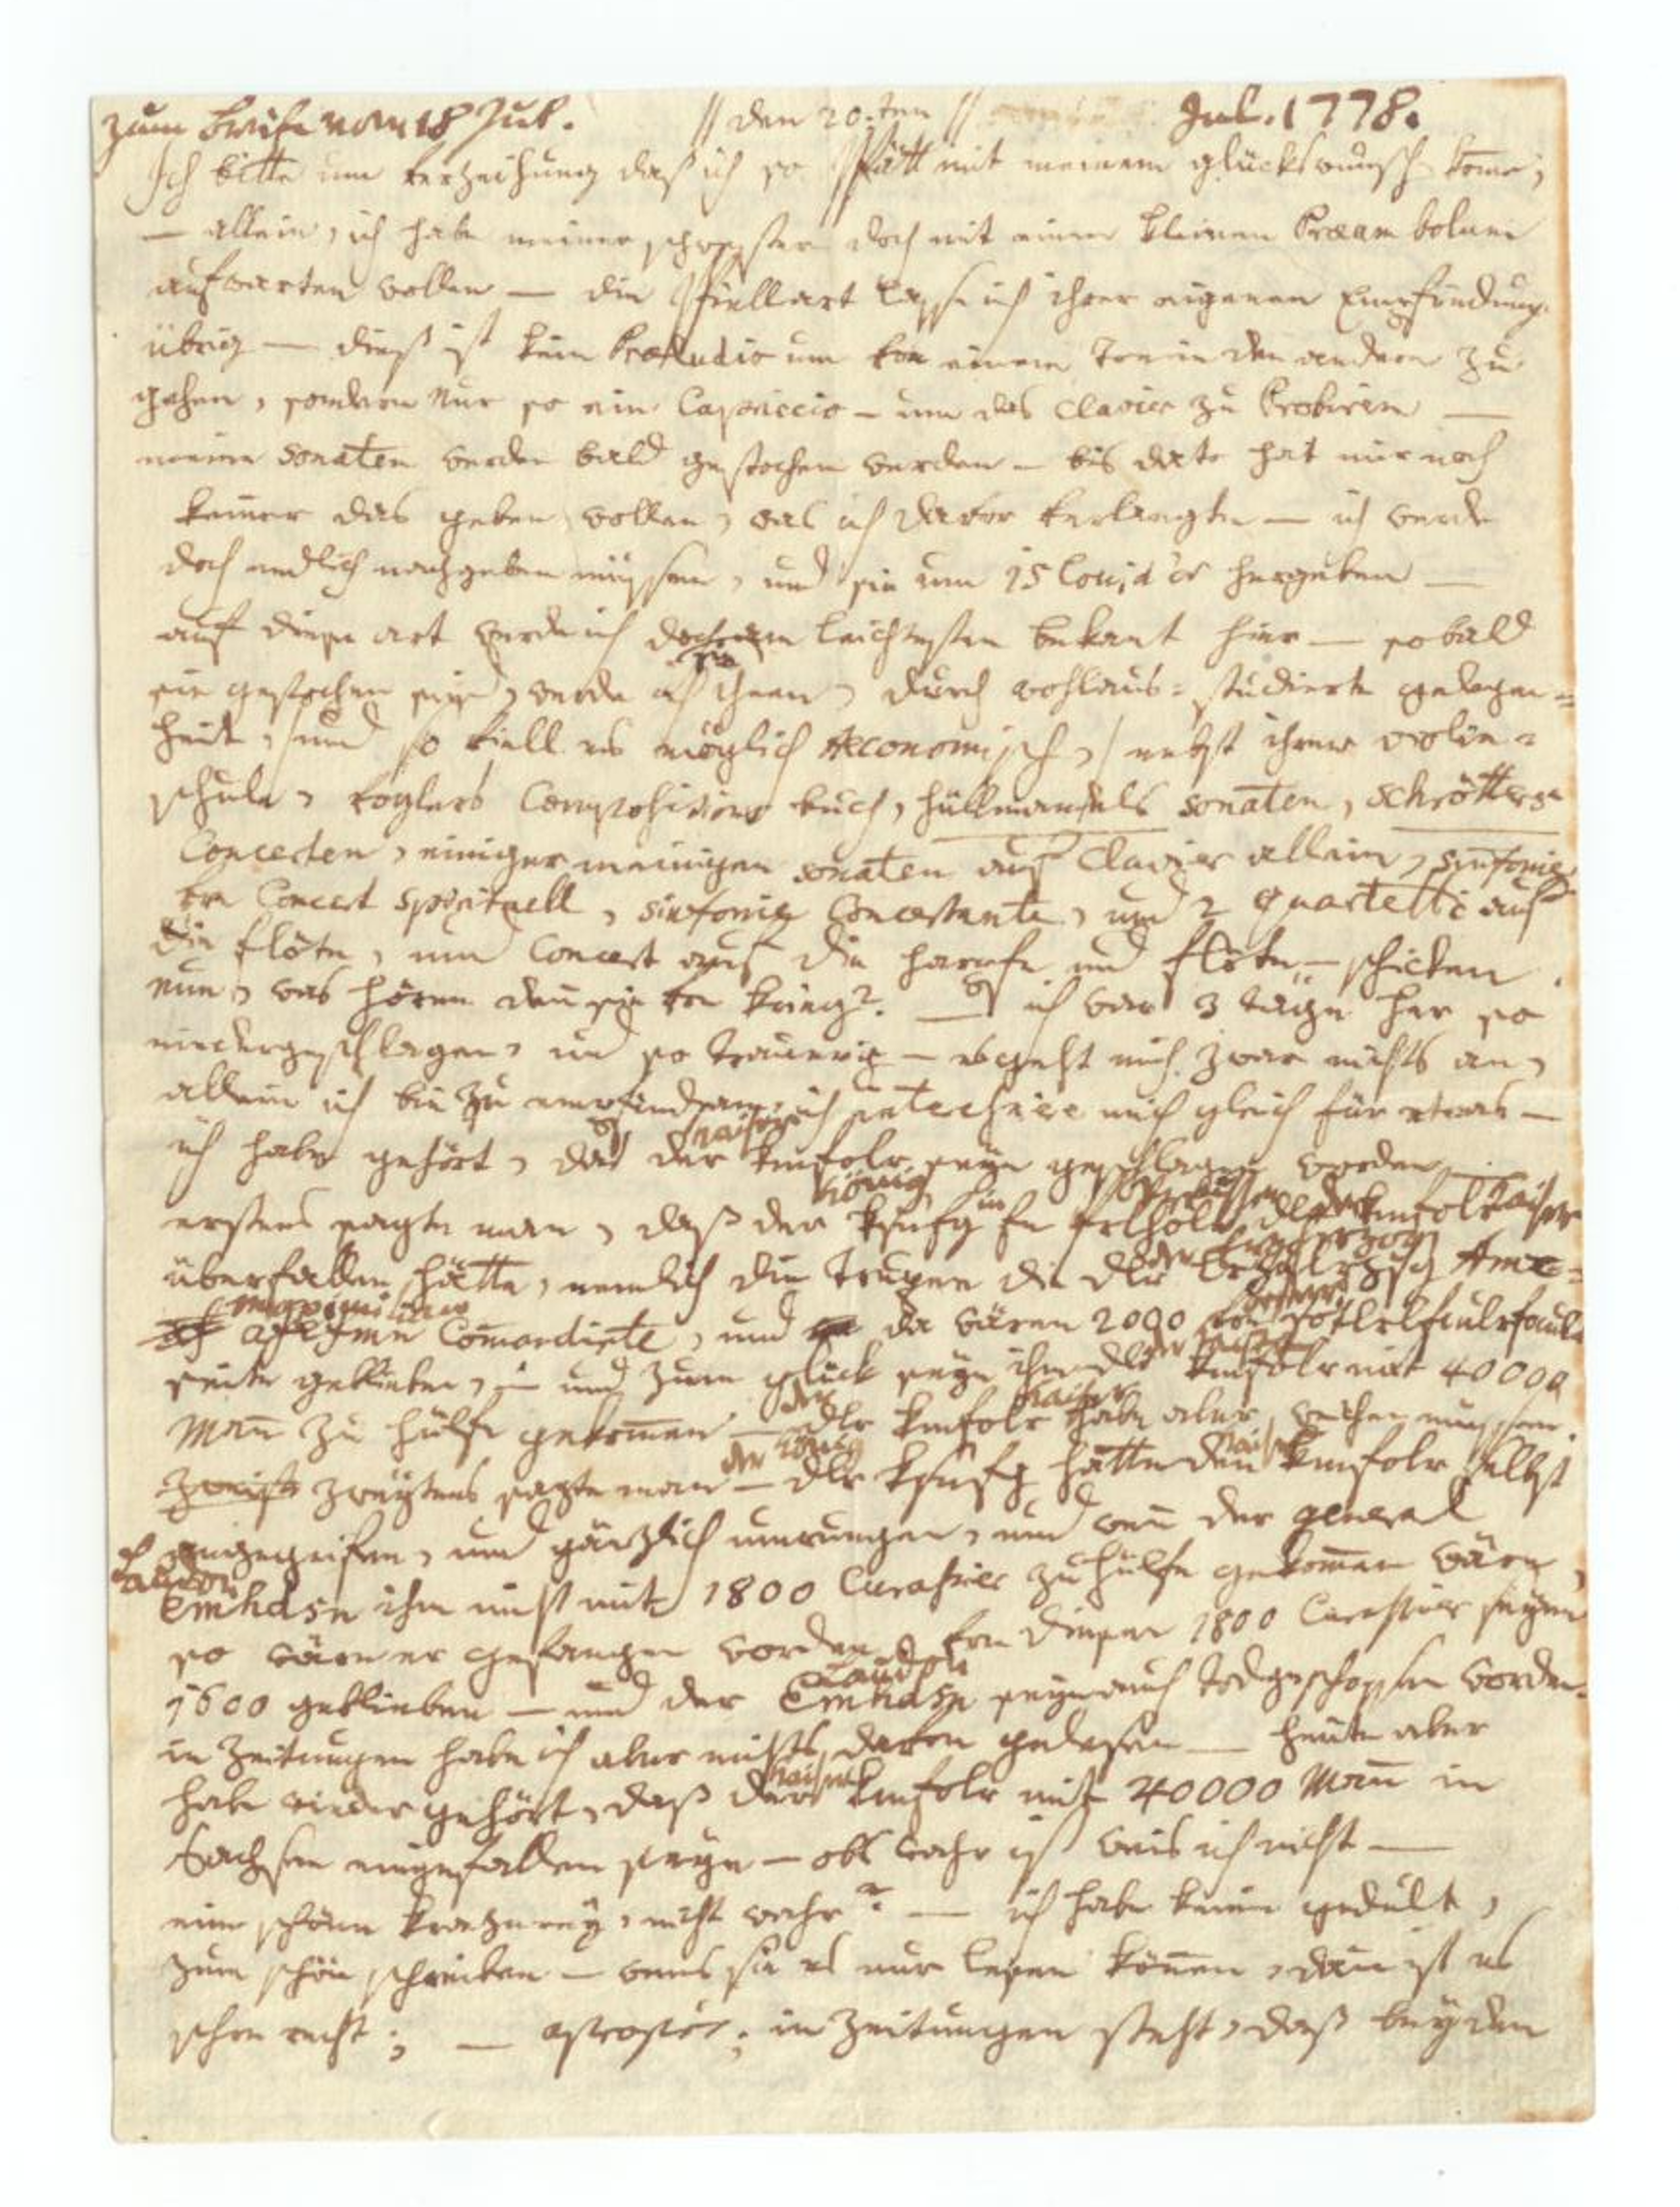 zum Briefe vom 18 Jul. // den 20:ten // Jul. 1778.
Ich bitte um verzeihung daß ich so spätt mit meinem glückswunsch kome;
— allein, ich habe meiner schwester doch mit einen kleinen Præambolum
aufwarten wollen — die spiellart lasse ich ihrer eigenen Empfindung
übrig — dieß ist kein Præludio um von einem Ton in den andern zu
gehen, sondern nur so ein Capriccio — um das Clavier zu Probiren —
meine sonaten werden bald gestochen werden — bis dato hat mir noch
keiner das geben wollen, was ich davor verlangte — ich werde
doch endlich nachgeben müssen, und sie um 15 Louis d'or hergeben —
auf diese art werde ich doch am leichtesten bekant hier — so bald
sie gestochen sind, werde ich sie ihnen, durch wohlaus= studierte gelegen=
heit, /und so viell es möglich Æconomisch,/ nebst ihrer violin=
schule, voglers Compositions buch, hüllmandels sonaten, schrötters
Concerten, einiger meinigen sonaten auf Clavier allein, sinfonie
von Concert spirituell, sinfonie Concertante, und 2 quartetti auf
die flöte, und Concert auf die harpfe und flöte — schicken.
nun, was hören den sie von krieg? — ich war 3 täge her so
niedergeschlagen, und so trauerig — es geht mich zwar nichts an,
allein ich bin zu empfindsam, ich interessire mich gleich für etwas —
ich habe gehört, das der kaiser kmfolr seye geschlagen worden —
erstens sagte man, daß der könig ksnfg in fn Preussen der den kmfolr kaiser
überfallen hätte, nemlich die Trupen die der Erzherzog
maximilian Comandirte, und da wären 2000 von
seite geblieben, — und zum glück seye ihm der kaiser kmfolr mit 40000
Mann zu hülfe gekommen — der kaiser kmfolr habe aber weichen müssen.
zweytens sagte man — der könig ksnfg hätte den kaiser kmfolr selbst
angegriffen, und gänzlich umrungen, und wenn der general
laudon Emhdsn ihm nicht mit 1800 Curassier zu hülfe gekommen wäre,
so wäre er gefangen worden, von diesen 1800 Curassier seyen
1600 geblieben — und der laudon Emhdsn seye auch tod geschossen worden.
in zeitungen habe ich aber nichts davon gelesen — heüte aber
habe wieder gehört, daß der kaiser kmfolr mit 40000 Mann in
Sachsen eingefallen seye — obs wahr ist weis ich nicht —
eine schöne kratzerey, nicht wahr? — ich habe keine gedult,
zum schön schreiben — wenns sie es nur lesen können, dann ist es
schon recht; — apropós; in zeitungen steht, daß bey den